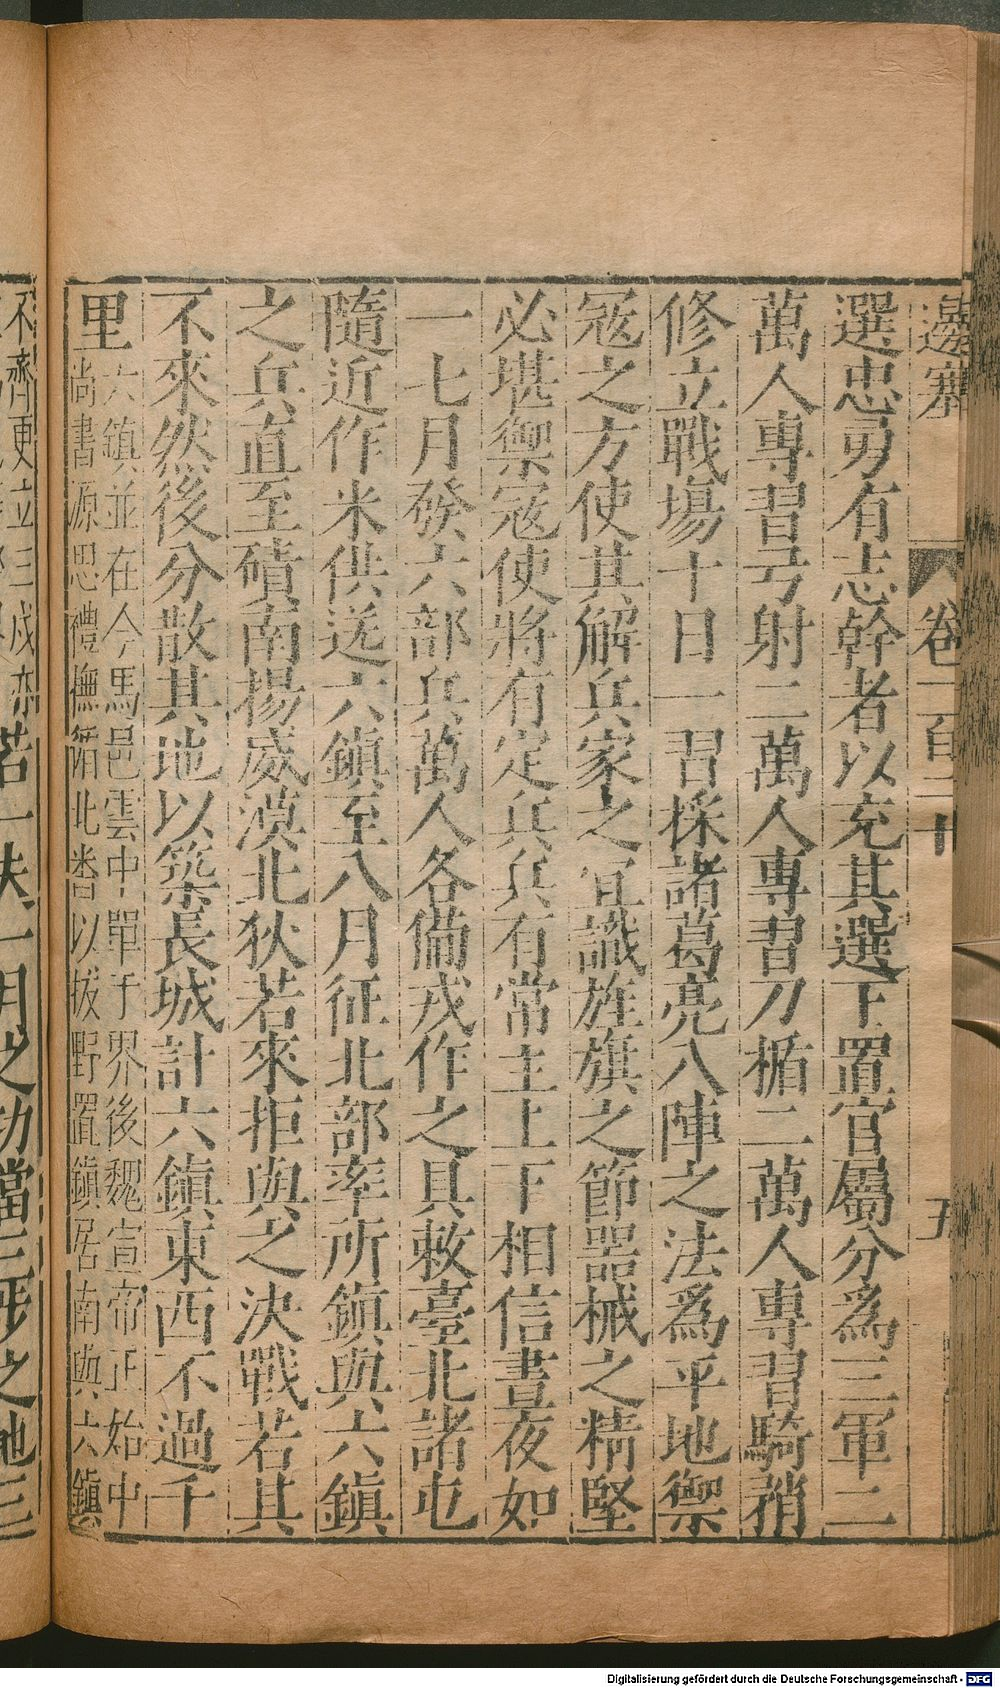 邊塞 卷二百二十 五
選忠勇有志幹者以充其選下置官屬分爲三軍二
萬人專習弓射二萬人專習刀楯二萬人專習騎矟
修立戰場十日一習採諸葛亮八陣之法爲平地禦
寇之方使其解兵家之宜識旌旗之節器械之精堅
必堪禦寇使將有定兵兵有常主上下相信晝夜如
一七月發六部兵萬人各備戎作之具敕臺北諸屯
隨近作米供送六鎮至八月征北部率所鎮與六鎮
之兵直至磧南揚威漠北狄若來拒與之決戰若其
不來然後分散其地以築長城計六鎮東西不過千
里
六鎮並在今馬邑雲中單于界後魏宣帝正始中
尚書源思禮撫循北蕃以拔野置鎮居南與六鎮
不齊更立三戍亦
若一夫一月之功當三步之地三
Digitalisierung gefördert durch die Deutsche Forschungsgemeinschaft - DFG